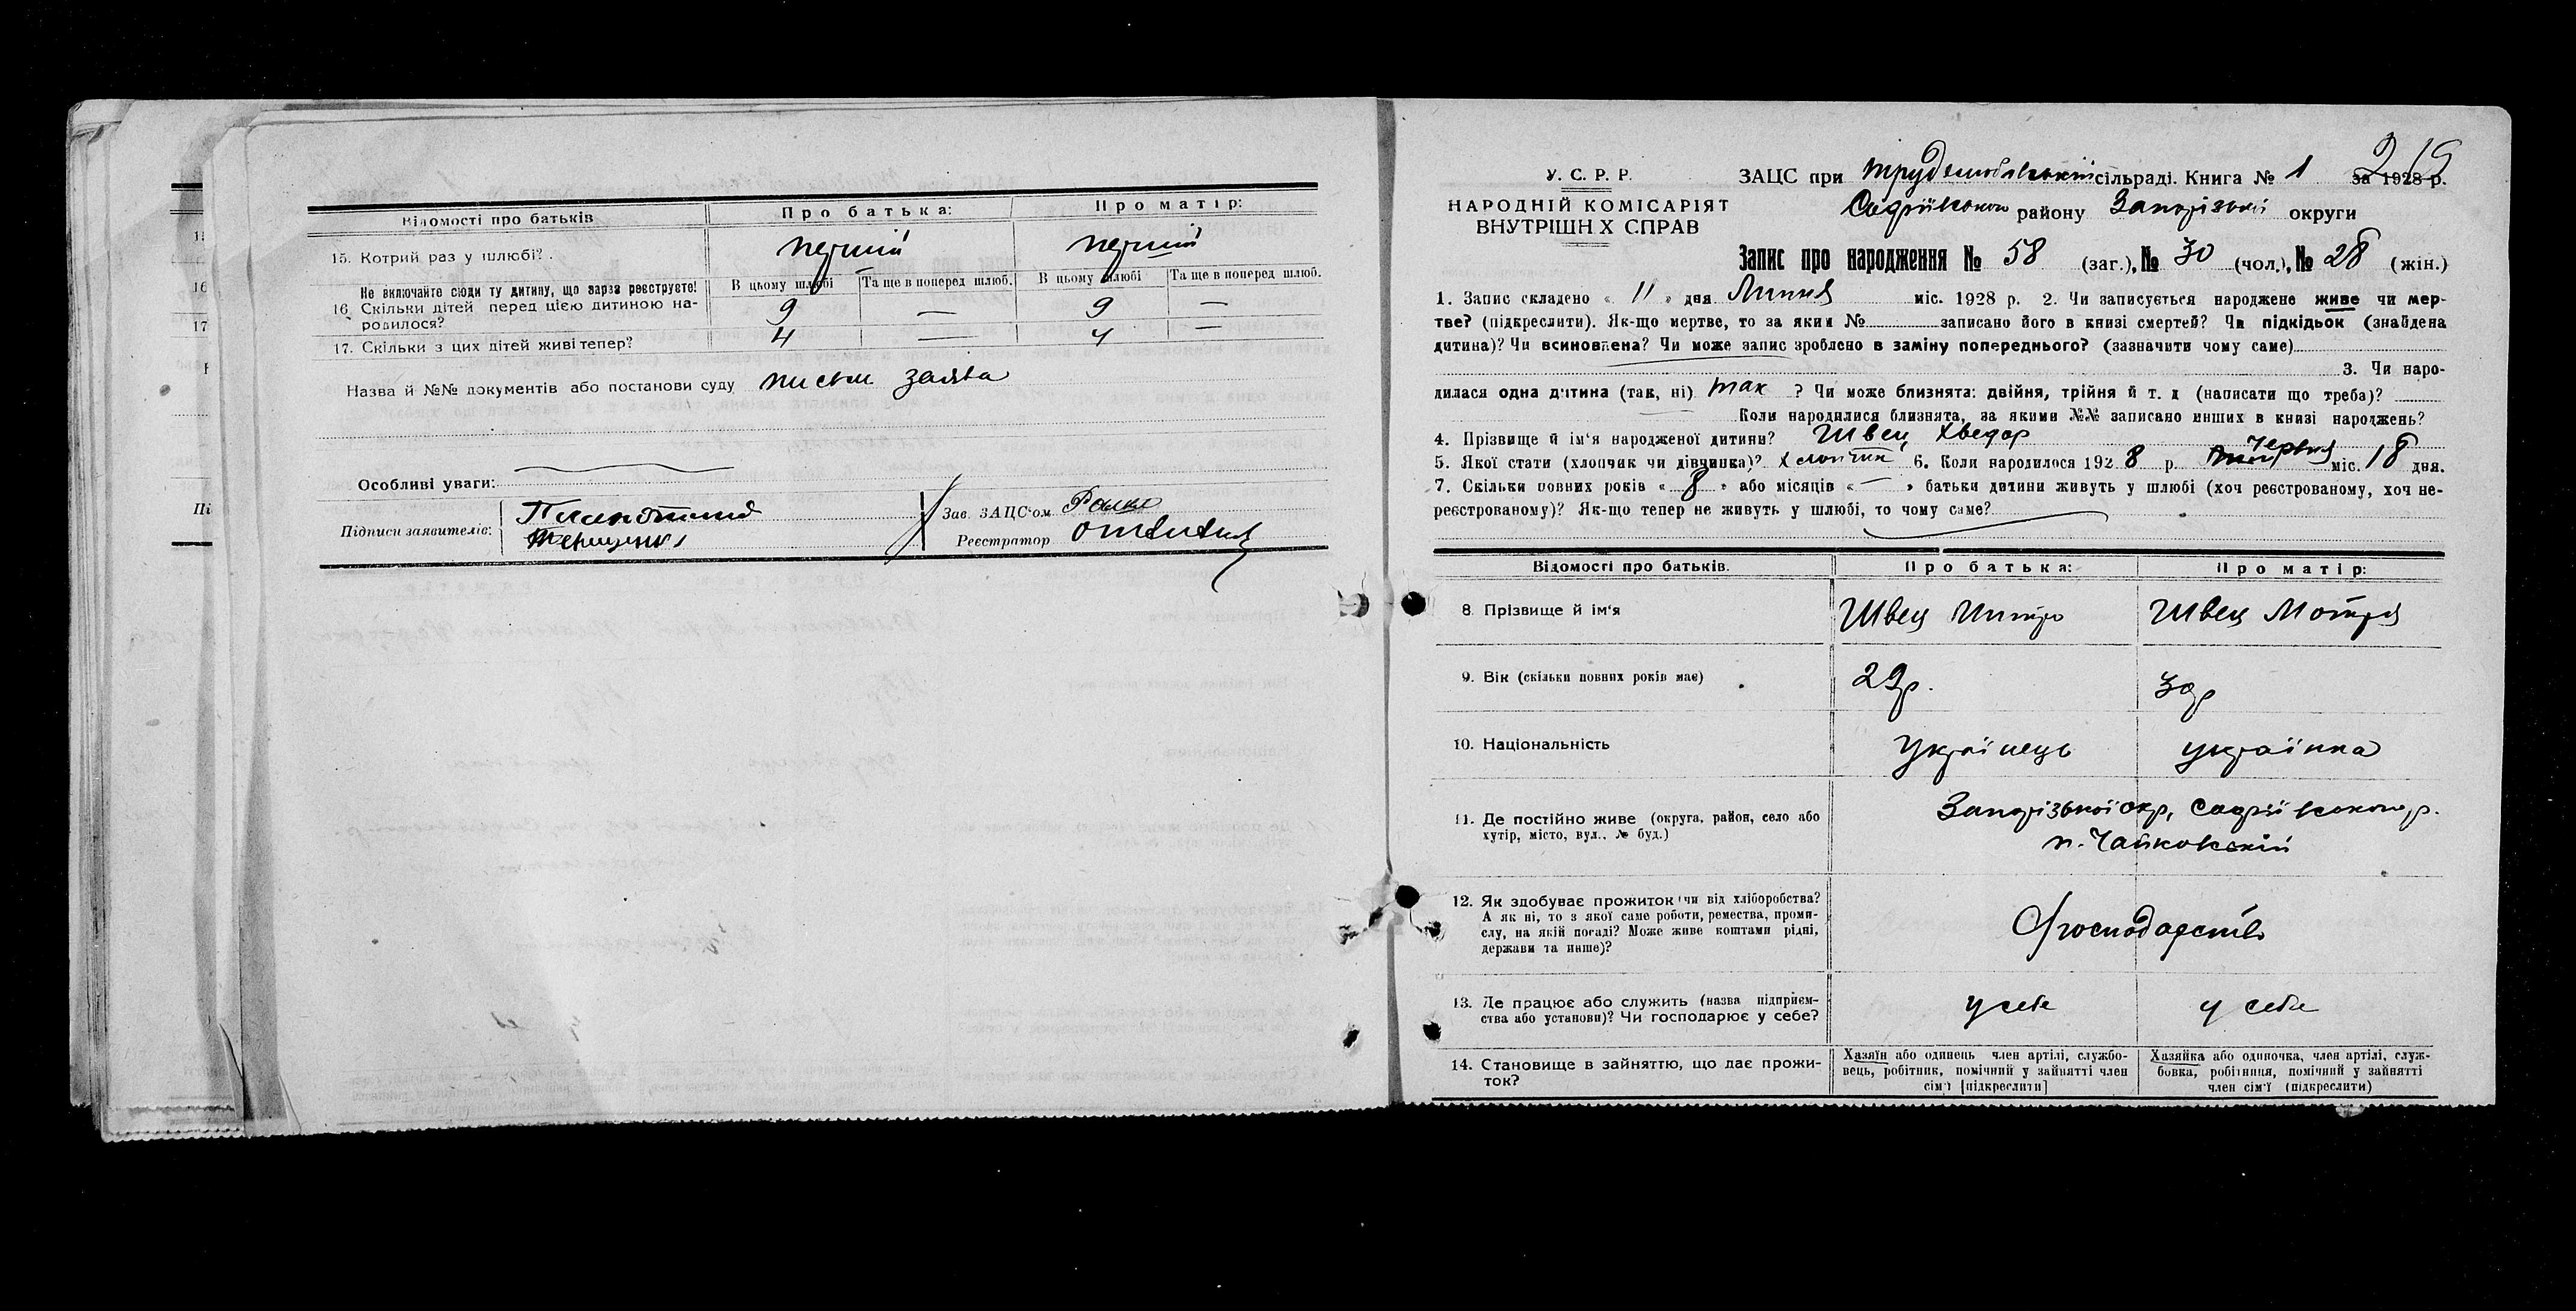 Відомості про батьків
Про батька:
Про матір:
15. Котрий раз у шлюбі?
перший
перший
Не включайте сюди ту дитину, що зараз реєструєте!
В цьому шлюбі
Та ще в поперед шлюб.
В цьому шлюбі
Та ще в поперед шлюб.
16. Скільки дітей перед цією дитиною на-
родилося?
9 — 9 —
17. Скільки з цих дітей живі тепер?
4 — 4 —
Назва й №№ документів або постанови суду письм заява
Особливі уваги:
Підписи заявителів:
Зав. ЗАЦС'ом
Реєстратор
У. С. Р. Р.
НАРОДНІЙ КОМІСАРІЯТ
ВНУТРІШНІХ СПРАВ
ЗАЦС при сільраді. Книга № 1 за 1928 р.
району Запорізької округи
Запис про народження № 58 (заг.), № 30 (чол.), № 28 (жін.)
1. Запис складено « 11 » дня Липня міс. 1928 р. 2. Чи записується народжене живе чи мер-
тве? (підкреслити). Як-що мертве, то за яким № записано його в книзі смертей? Чи підкідьок (знайдена
дитина)? Чи всиновлена? Чи може запис зроблено в заміну попереднього? (зазначити чому саме)
3. Чи наро-
дилася одна дитина (так, ні) так ? Чи може близнята: двійня, трійня й т. д (написати що треба)?
Коли народилися близнята, за якими №№ записано инших в книзі народжень?
4. Прізвище й ім'я народженої дитини? Швец Хведор
5. Якої стати (хлопчик чи дівчинка)? хлопчик 6. Коли народилося 1928 р. Червня міс. 18 дня.
7. Скільки повних років « 8 » або місяців « — » батьки дитини живуть у шлюбі (хоч реєстрованому, хоч не-
реєстрованому)? Як-що тепер не живуть у шлюбі, то чому саме?
Відомості про батьків.
Про батька:
Про матір:
8. Прізвище й ім'я
Швец
Швец Мотря
9. Вік (скільки повних років має)
29р.
30р
10. Національність
Українець
українка
11. Де постійно живе (округа, район, село або
хутір, місто, вул., № буд.)
Запорізької окр,
п. Чайковскій
12. Як здобуває прожиток чи від хліборобства?
А як ні, то з якої саме роботи, ремества, проми-
слу, на якій посаді? Може живе коштами рідні,
держави та инше)?
13. Де працює або служить (назва підприєм-
ства або установи)? Чи господарює у себе?
у себе
у себе
14. Становище в зайняттю, що дає прожи-
ток?
Хазяїн або одинець член артілі, службо-
вець, робітник, помічний у зайнятті член
сім'ї [підкреслити]
Хазяйка або одиночка, член артілі, служ-
бовка, робітниця, помічний у зайнятті
член сім'ї (підкреслити)